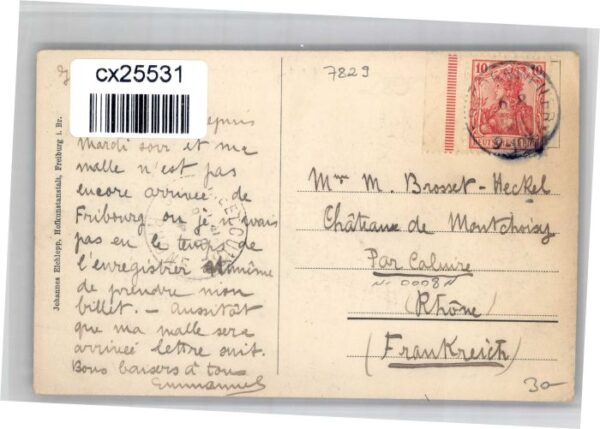 cx25531
7829
10 10
Johannes Elchlepp, Hofkunstanstalt, Freiburg i. Br.
depuis
Mardi soir et ma
malle n'est pas
encore arrivée de
Fribourg où je n'avais
pas eu le temps de
l'enregistrer
de prendre mon
billet. — Aussitôt
que ma malle sera
arrivée lettre suit.
Bons baisers à tous
Emmanuel
M. Brosset-Heckel
Château de Montchoisy
Par Caluire
(Rhône)
(Frankreich)
30-